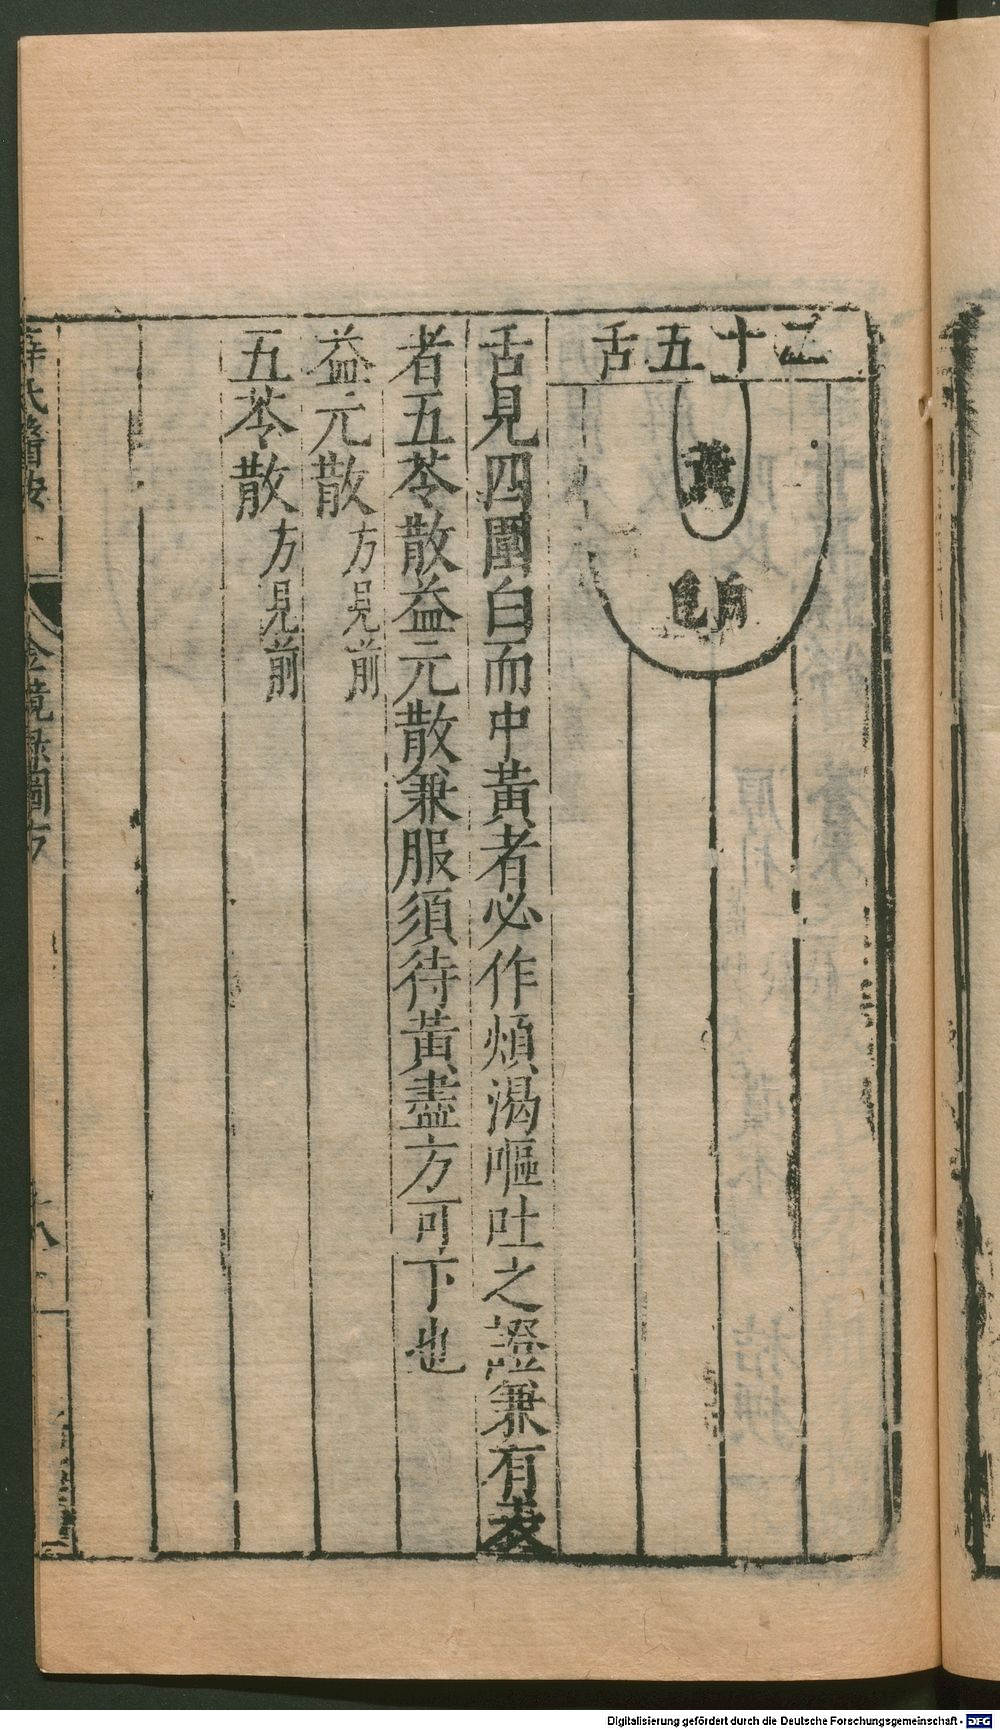 二十五舌
黃
白色
舌見四圍白而中黃者必作煩渴嘔吐之證兼有表
者五苓散益元散兼服須待黃盡方可下也
益元散方見前
五苓散方見前
薛氏醫按 金鏡錄圖方
Digitalisierung gefördert durch die Deutsche Forschungsgemeinschaft - DFG